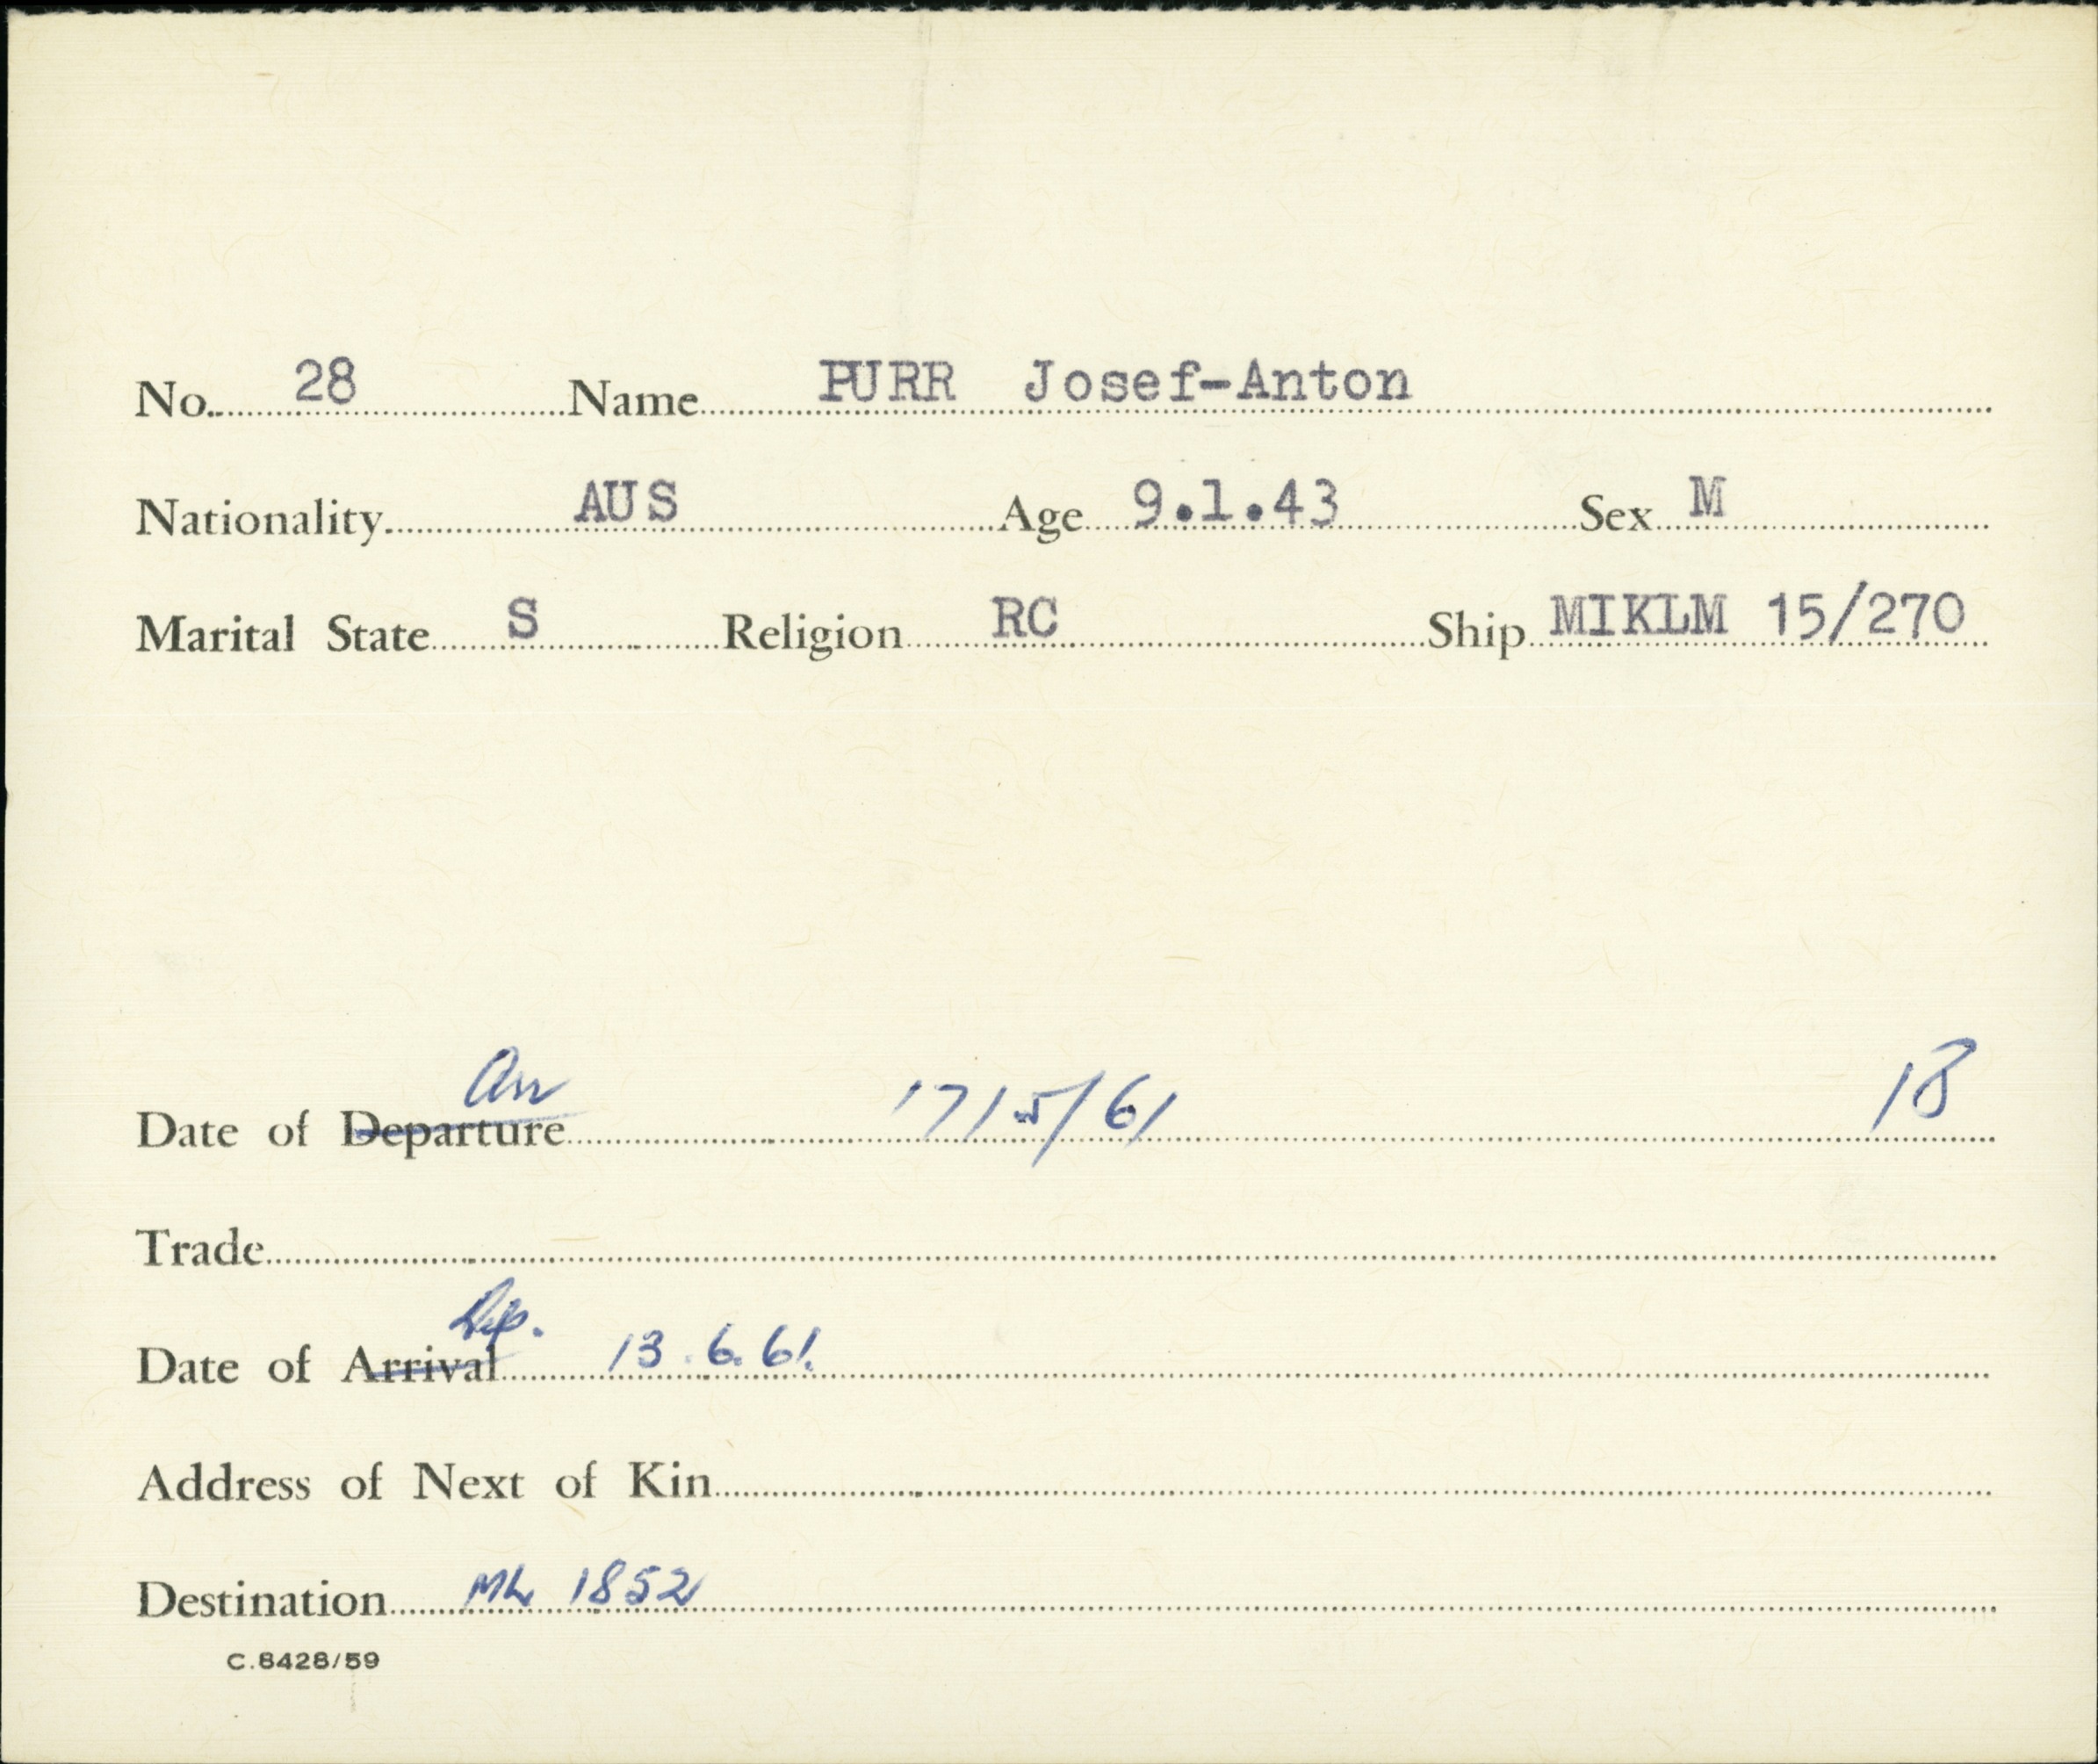 No. 28 Name PURR Josef-Anton
Nationality AUS Age 9.1.43 Sex M
Marital State S Religion RC Ship MIKLM 15/270
Arr
Date of Departure 17/5/61 18
Trade
Dep.
Date of Arrival 13.6.61.
Address of Next of Kin
Destination ML 1852
C.8428/59